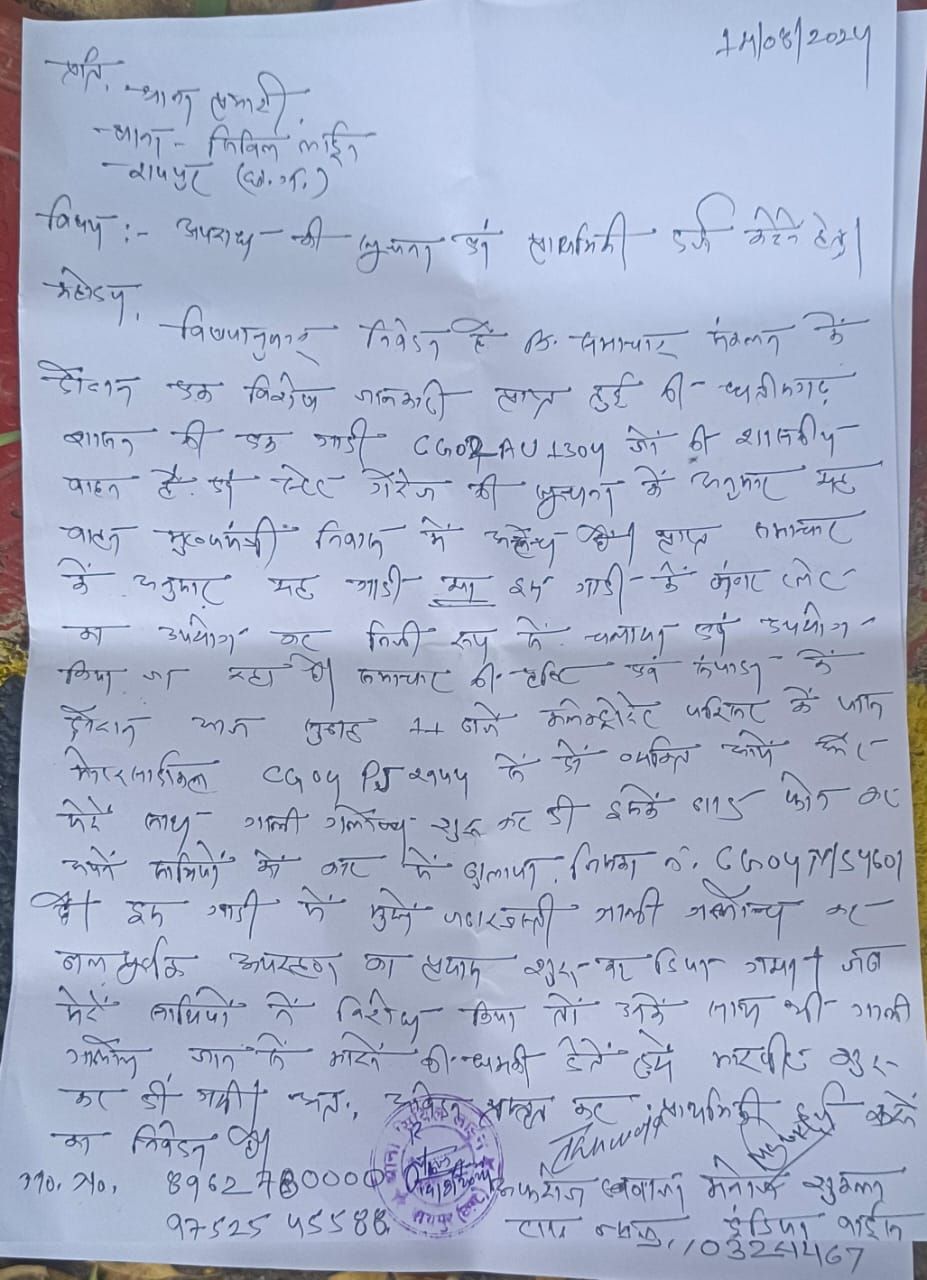 14/08/2024
प्रति,
थाना प्रभारी,
थाना - सिविल लाईन
रायपुर (छ.ग.)
विषय :- अपराध की सूचना एवं प्राथमिकी दर्ज करने हेतु।
महोदय,
विषयानुसार निवेदन है कि समाचार संकलन के
दौरान एक विशेष जानकारी प्राप्त हुई की छत्तीसगढ़
शासन की एक गाडी CG02 AU 1304 जो की शासकीय
वाहन है. एवं स्टेट गैरेज की सूचना के अनुसार यह
वाहन मुख्यमंत्री निवास में अटैच्ड है। प्राप्त समाचार
के अनुसार यह गाडी या इस गाडी के नंबर प्लेट
का उपयोग कर निजी रूप में चलाया एवं उपयोग
किया जा रहा है। समाचार की दृष्टि एवं संपादन के
दौरान आज सुबह 11 बजे कलेक्ट्रोरेट परिसर के पास
मोटरसाईकिल CG04 PJ 2954 में दो व्यक्ति आये और
मेरे साथ गाली गलौच्च शुरू कर दी इसके बाद फोन कर
अपने साथियों को कार में बुलाया. जिसका नं. CG04 MS4601
है। इस गाडी में मुझे जबरजस्ती गाली गलौच्च कर
बलपूर्वक अपरहण का प्रयास शुरू कर दिया गया। जब
मेरे साथियों ने विरोध किया तो उनके साथ भी गाली
गलौच जान से मारने की धमकी देते हुये मारपीट शुरू
कर दी गयी। अतः, आवेदन प्रस्तुत कर प्राथमिकी दर्ज करने
का निवेदन है।
मो. नo. 8962480000 मनोज शुक्ला
97525 45588 इंडिया वाईस
7703241467